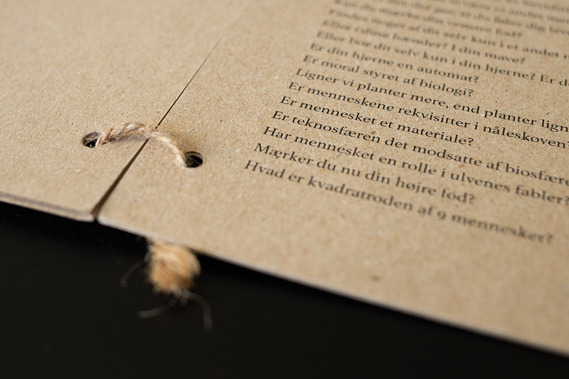 Mærker du din venstre fod?
Findes noget af dig selv kun i et andet
Eller i dine hænder? I din mave?
Eller bor dit selv kun i din hjerne? Er d
Er din hjerne en automat?
Er moral styret af biologi?
Ligner vi planter mere, end planter lign
Er menneskene rekvisitter i nåleskoven
Er mennesket et materiale?
Er teknosfæren det modsatte af biosfære
Har mennesket en rolle i ulvenes fabler?
Mærker du nu din højre fod?
Hvad er kvadratroden af 9 mennesker?